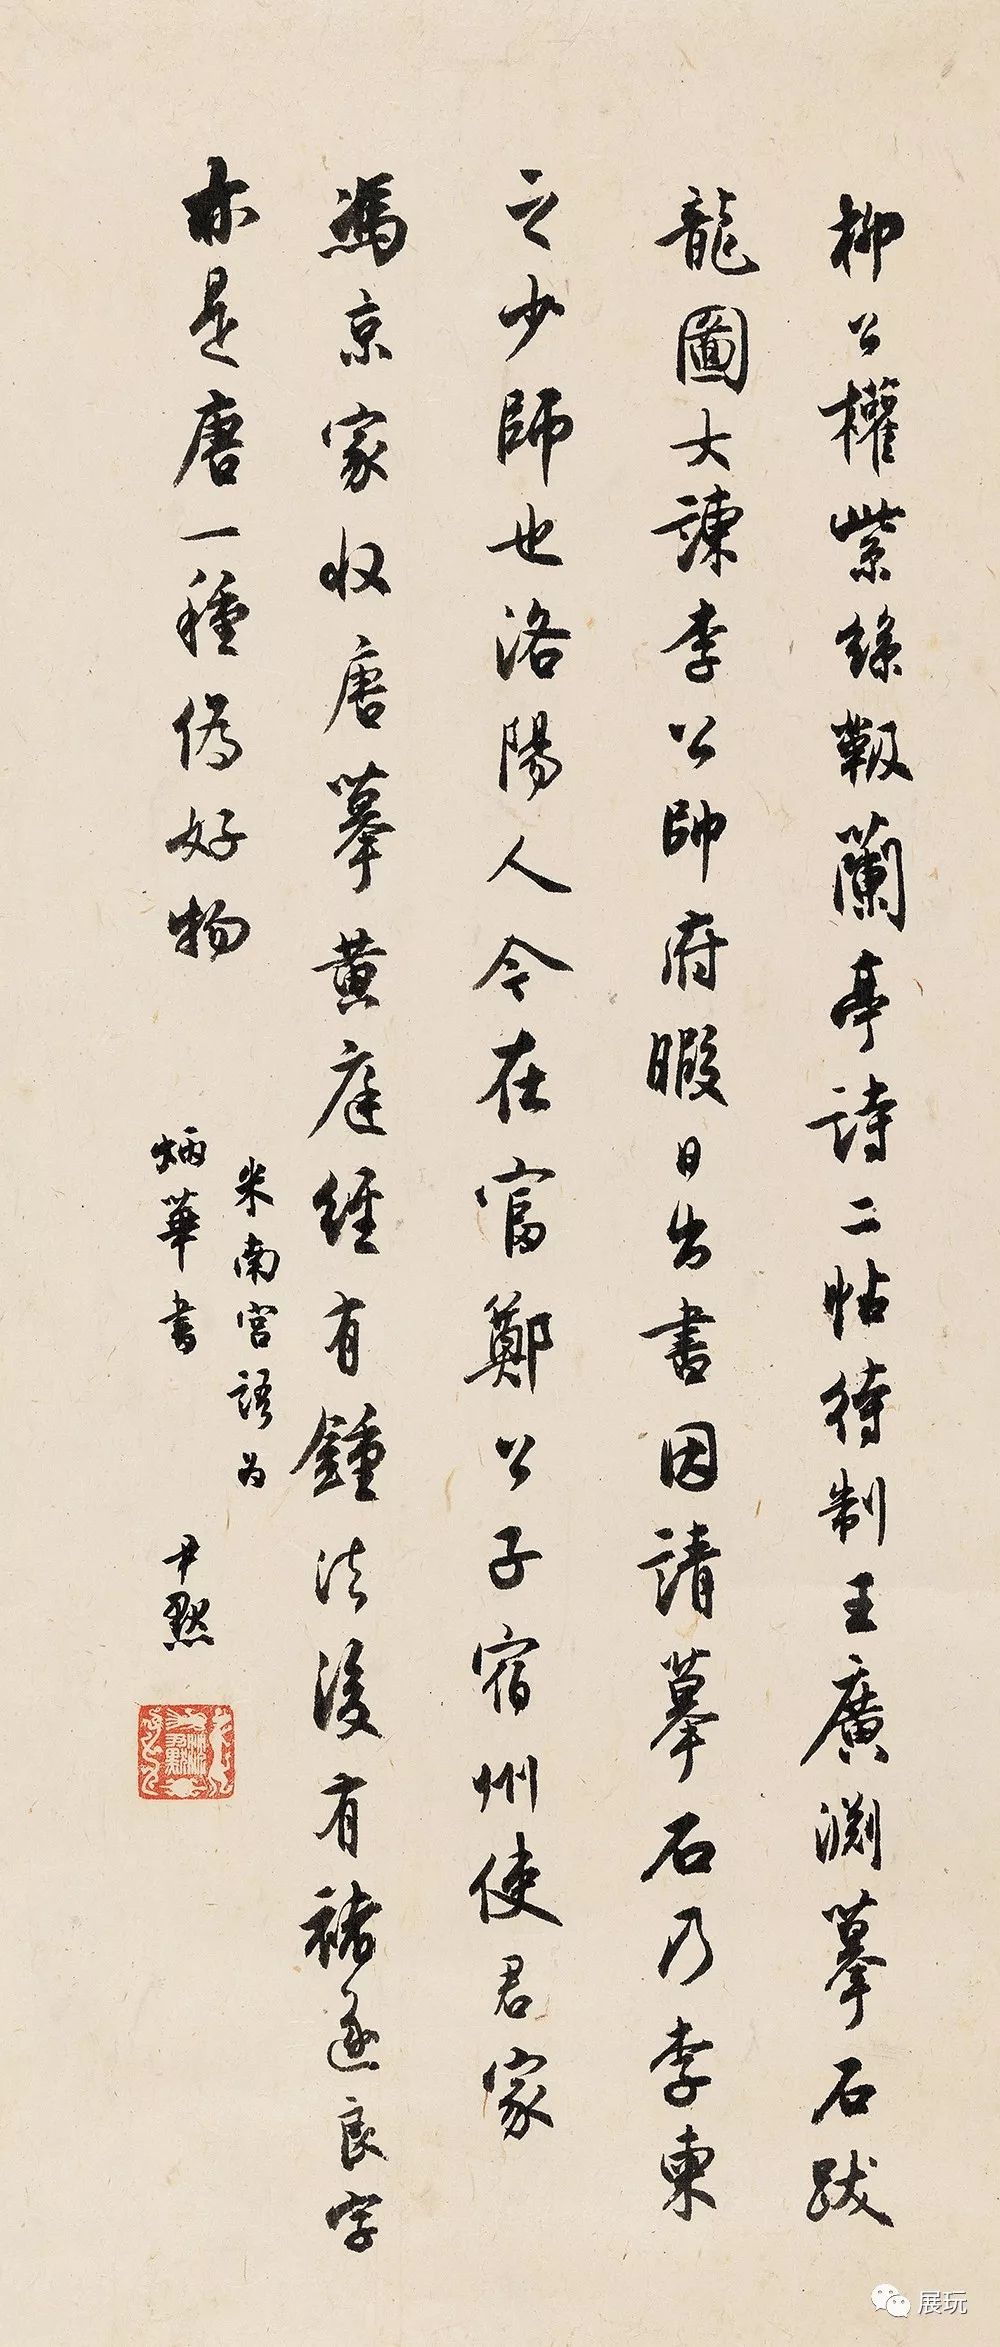 柳公權紫絲靸蘭亭詩二帖待制王廣淵摹石跋
龍圖大諫李公師府暇日出書因請摹石乃李柬
之少師也洛陽人今在富鄭公子宿州使君家
馮京家收唐摹黃庭經有鍾法後有褚遂良字
亦是唐一種偽好物
米南宮語为
炳華書
尹默
展玩